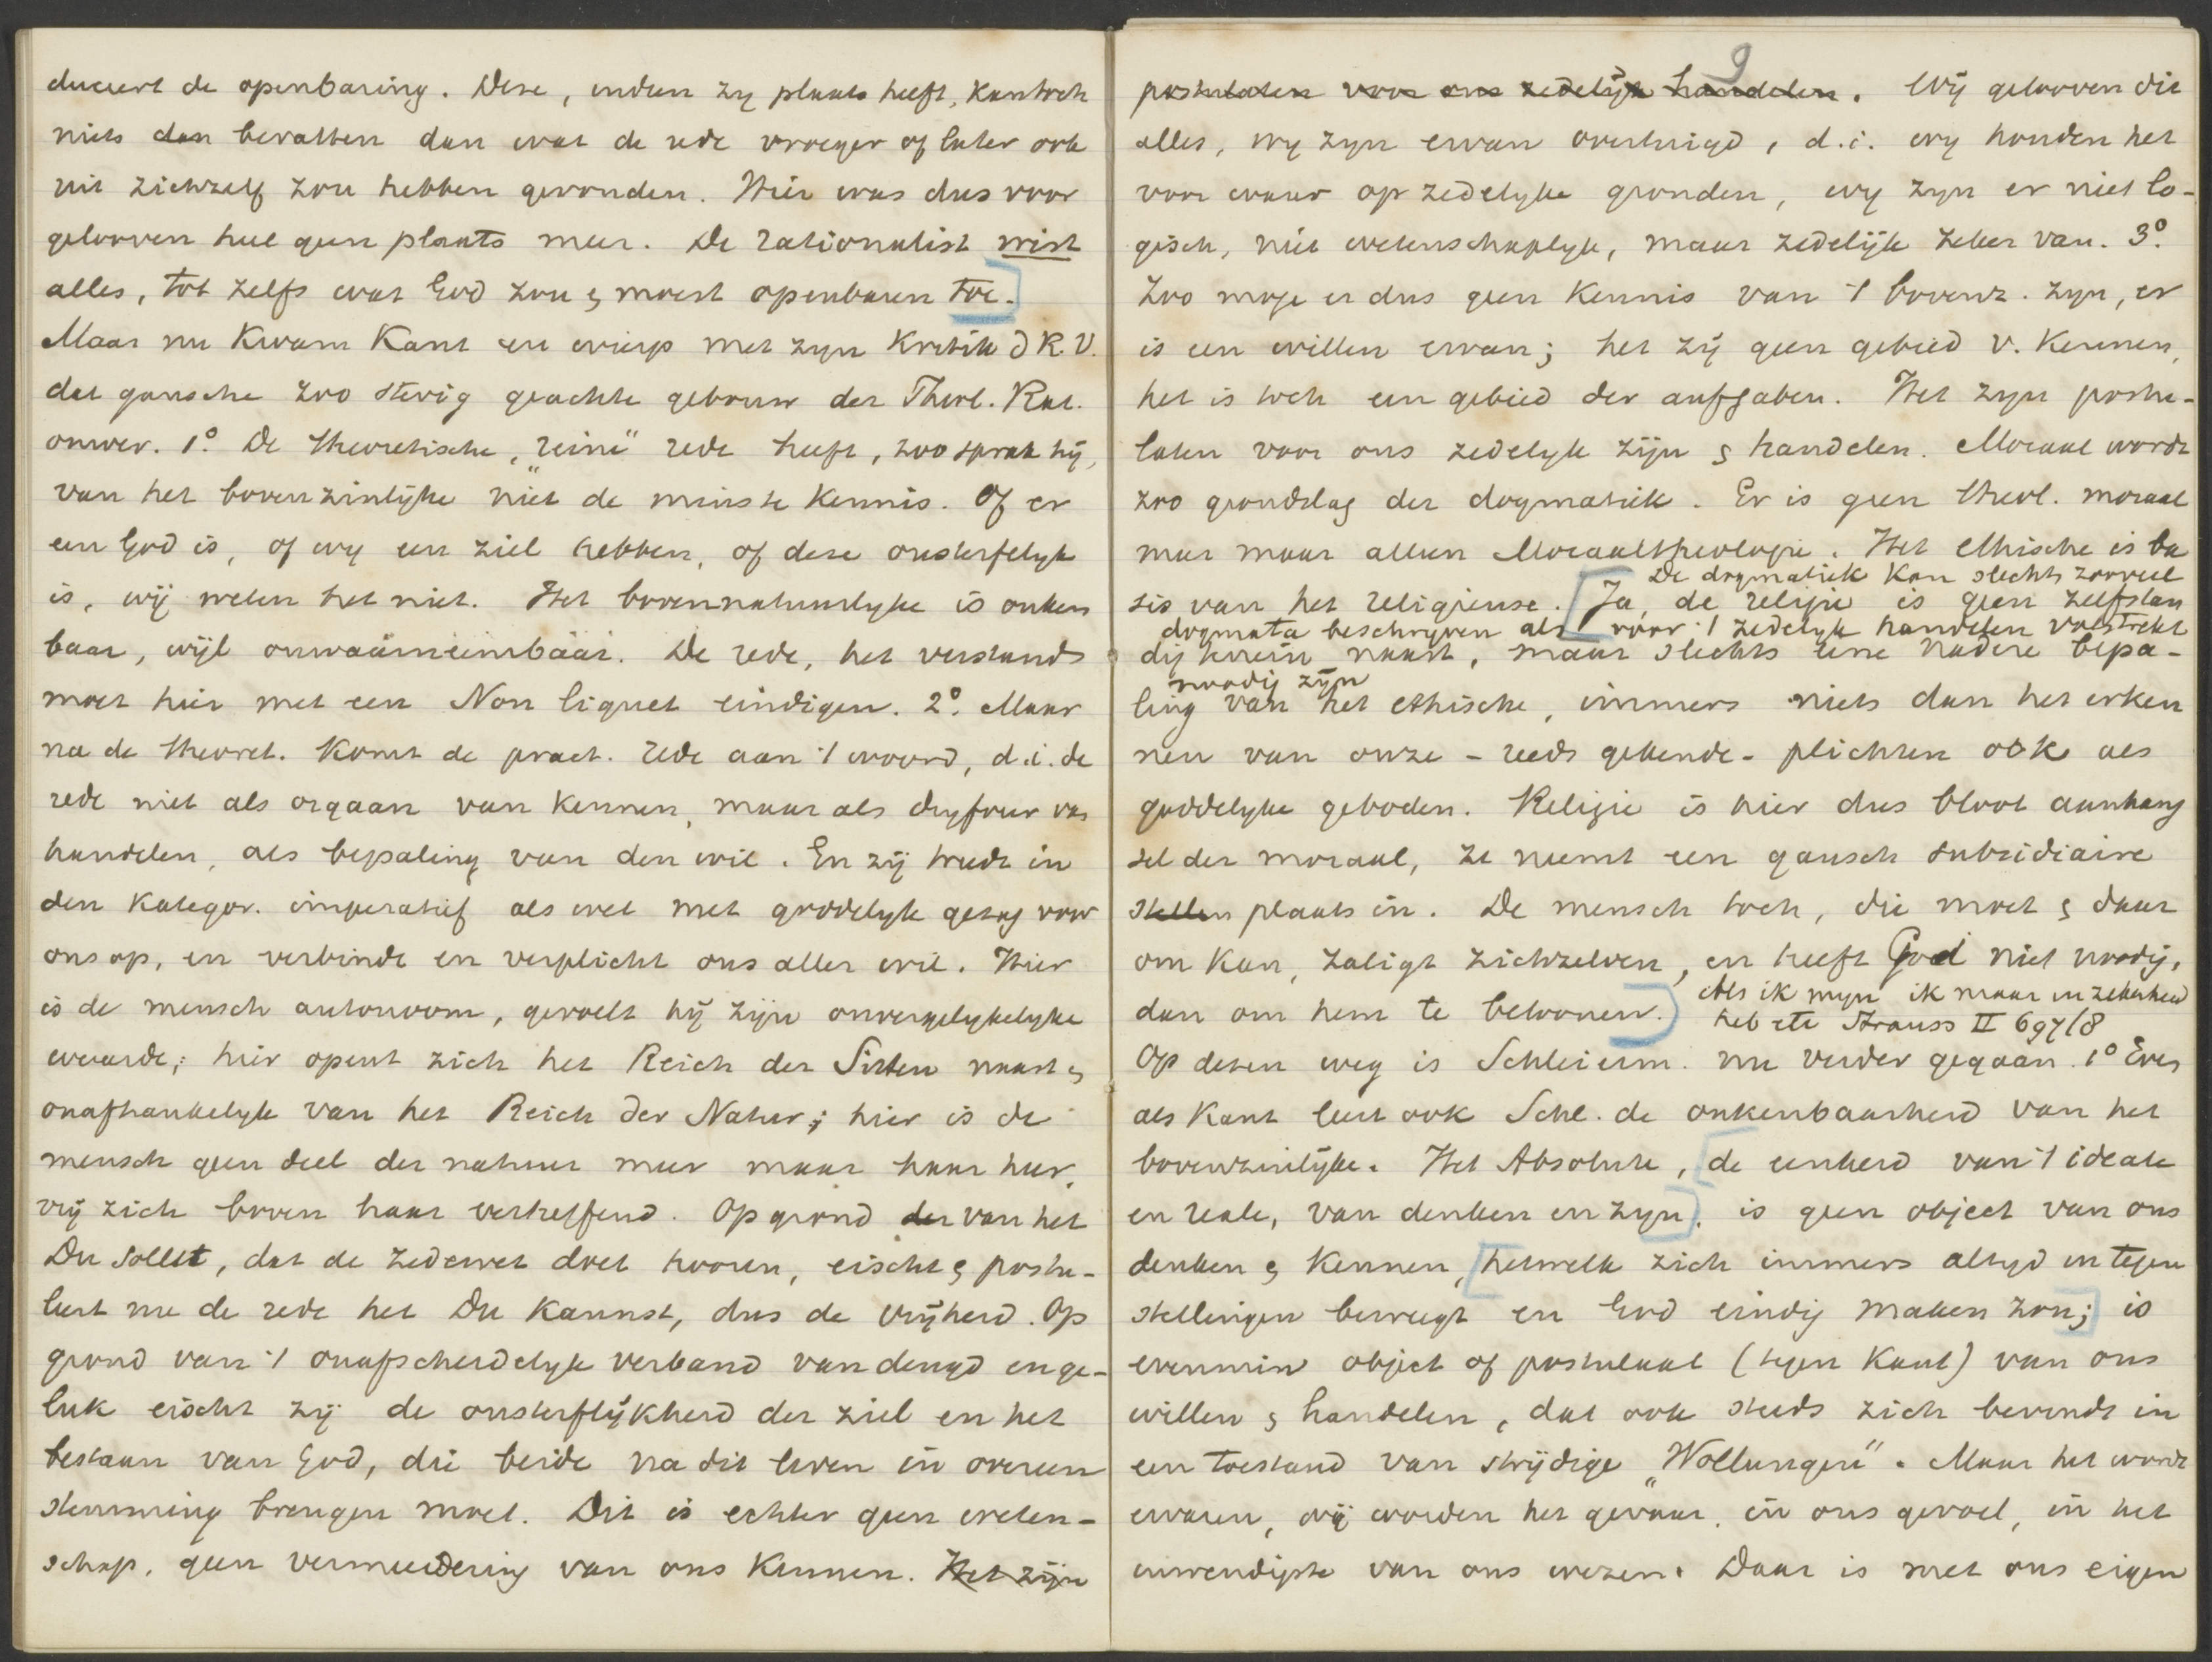 duceert de openbaring. Deze, indien zy plaats heeft, kan toch
niets dan bevatten dan wat de rede vroeger of later ook
uit zichzelf zou hebben gevonden. Hier was dus voor
gelooven heel geen plaats meer. De rationalist wist
alles, tot zelfs wat God zou & moest openbaren toe.
Maar nu kwam Kant en wierp met zyn Kritik d R. V.
dat gansche zoo stevig geachte gebouw der Theol. Rat.
omver. 1° De theoretische, "reine" rede heeft, zoo sprak hij,
van het bovenzinlijke niet de minste kennis. Of er
een God is, of wy een ziel hebben, of deze onsterfelyk
is, wij weten het niet. Het bovennatuurlyke is onken
baar, wijl onwaarneembaar. De rede, het verstand
moet hier met een Non liquet eindigen. 2° Maar
na de theoret. komt de pract. rede aan 't woord, d.i. de
rede niet als orgaan van kennen, maar als dryfveer van
handelen, als bepaling van den wil. En zij treedt in
den kategor. imperatief als wet met goddelyk gezag voor
ons op, en verbindt en verplicht ons aller wil. Hier
is de mensch autonoom, gevoelt hij zijn onvergelykelyke
waarde; hier opent zich het Reich der Sitten naast &
onafhankelyk van het Reich der Natur; hier is de
mensch geen deel der natuur meer maar haar heer,
vrij zich boven haar verheffend. Op grond der van het
Du sollst, dat de zedewet doet hooren, eischt & postu-
leert nu de rede het Du kannst, dus de vrijheid. Op
grond van 't onafscheidelyk verband van deugd en ge-
luk eischt zij de onsterflijkheid der ziel en het
bestaan van God, die beide na dit leven in overeen
stemming brengen moet. Dit is echter geen weten-
schap, geen vermeerdering van ons kennen. Het zijn
9
postulaten voor ons zedelijk handelen. Wij gelooven dit
alles, wy zyn ervan overtuigd, d.i. wy houden het
voor waar op zedelyke gronden, wy zyn er niet lo-
gisch, niet wetenschaplyk, maar zedelijk zeker van. 3°
Zoo moge er dus geen kennis van 't bovenz. zyn, er
is een willen ervan; het zij geen gebied v. kennen,
het is toch een gebied der aufgaben. Het zyn postu-
laten voor ons zedelyk zijn & handelen. Moraal wordt
zoo grondslag der dogmatiek. Er is geen theol. moraal
meer maar alleen Moraaltheologie. Het ethische is ba
De dogmatiek kan slechts zooveel
sis van het religieuse. Ja, de religie is geen zelfstan
dogmata beschryven als voor 't zedelyk handelen volstrekt
dig terrein naast, maar slechts eene nadere bepa-
noodig zijn
ling van het ethische, immers niets dan het erken
nen van onze - reeds gekende - plichten ook als
goddelyke geboden. Religie is hier dus bloot aanhang
sel der moraal, ze neemt een gansch subsidiaire
stellen plaats in. De mensch toch, die moet & daar
om kan, zaligt zichzelven, en heeft God niet noodig,
dan om hem te beloonen.
Als ik myn ik maar in zekerheid
heb etc Strauss II 697/8
Op dezen weg is Schleierm. nu verder gegaan. 1° Even
als Kant leert ook Schl. de onkenbaarheid van het
bovenzinlijke. Het Absolute, de eenheid van 't ideale
en reale, van denken en zyn, is geen object van ons
denken & kennen, hetwelk zich immers altyd in tegen
stellingen beweegt en God eindig maken zou; is
evenmin object of postulaat (tegen Kant) van ons
willen & handelen, dat ook steeds zich bevindt in
een toestand van strijdige "Wollungen". Maar het wordt
ervaren, wij worden het gewaar, in ons gevoel, in het
inwendigste van ons wezen. Daar is met ons eigen